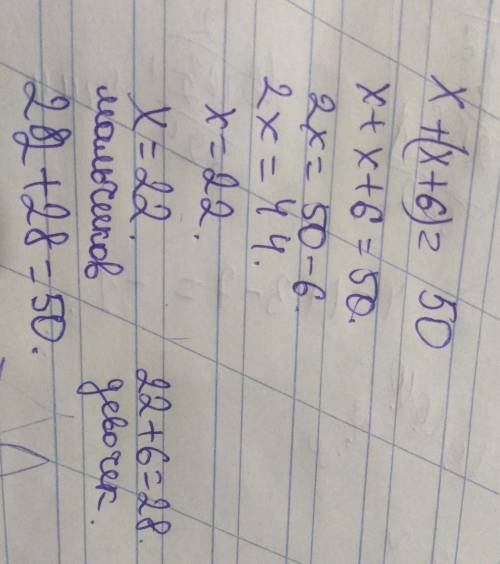 x+(x+6)= 50
x+x+6=50.
2x=50-6.
2x=44.
x=22.
x=22. 22+6=28.
мальчиков девочек.
22+28=50.